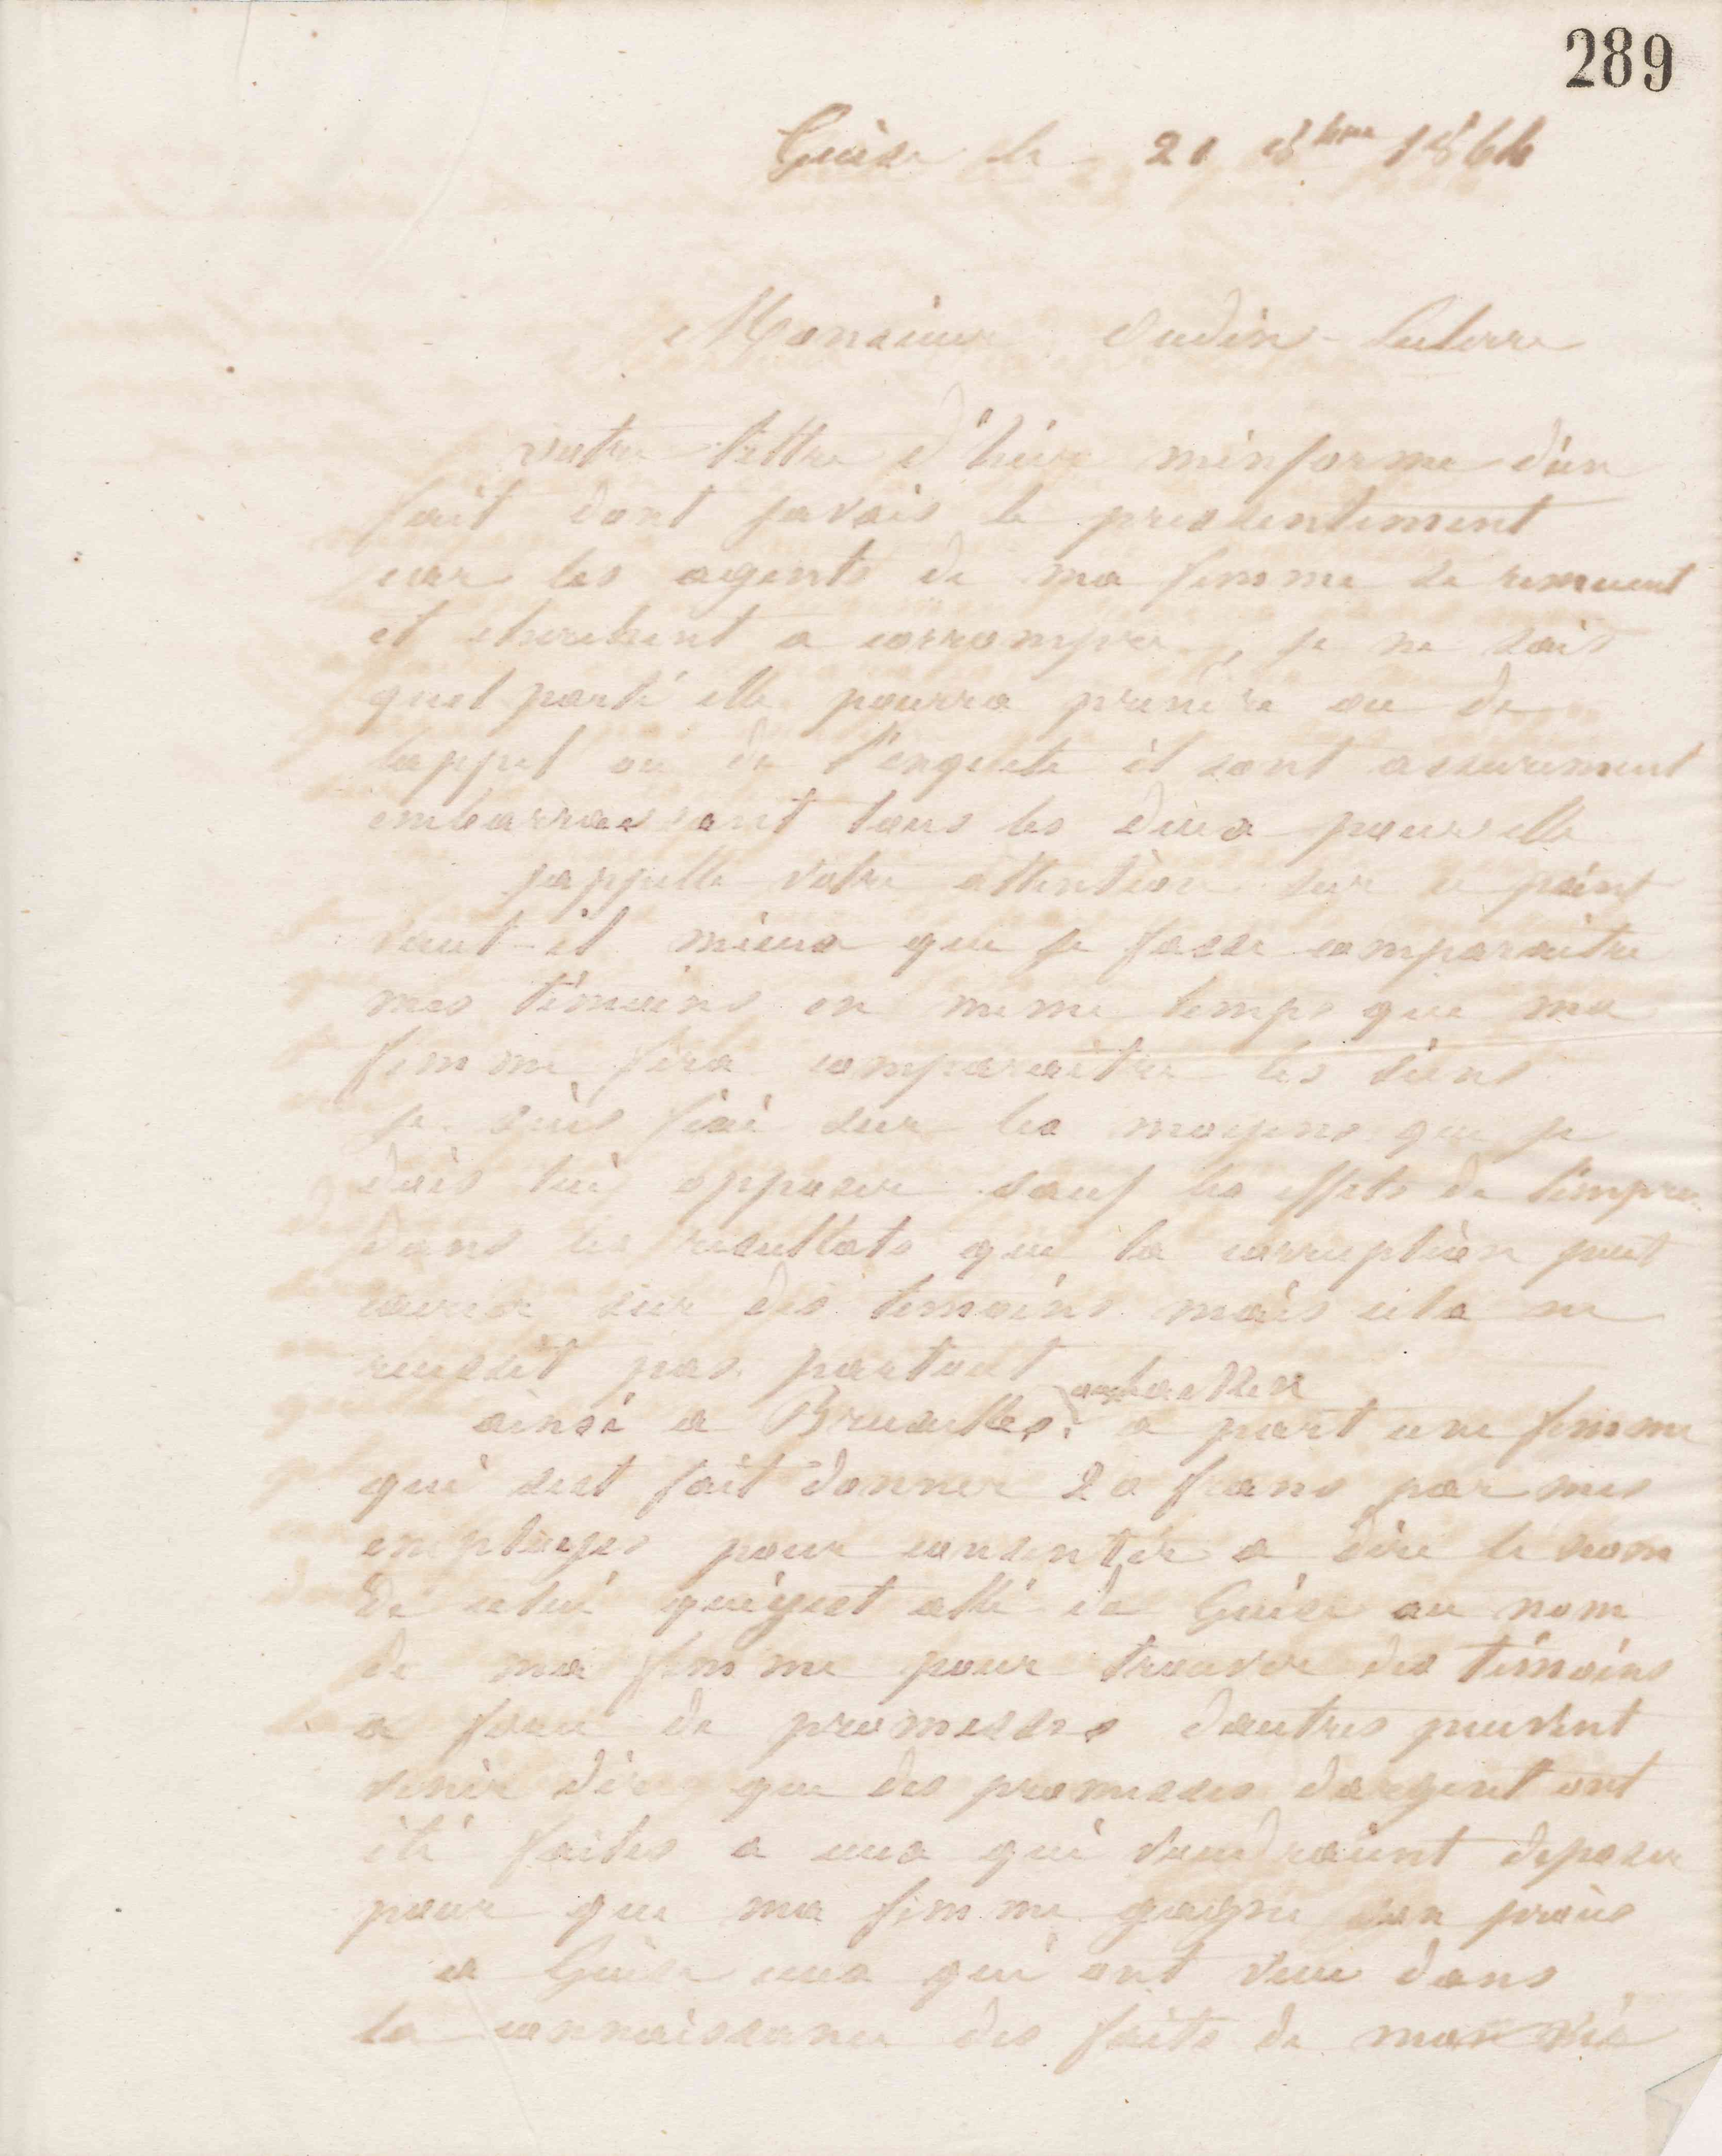 289
Guise le 21 8bre 1864
Monsieur Oudin-Leclerre
votre lettre d'hier m'informe d'un
fait dont javais le pressentiment
car les agents de ma femme se remuent
et cherchent a corrompre, je ne sais
quel parti elle pourra prendre ou de
lappel ou de l'enquete il sont assurement
embarrassant tous les deux pour elle
jappelle votre attention sur ce point
vaut-il mieux que je fasse comparaitre
mes témoins en meme temps que ma
femme fera comparaitre les siens
je suis fixé sur les moyens que je
dois lui opposer sauf les effets de l'impre
dans les resultats que la corruption peut
sur des temoins mais cela ne
reussit pas partout
ainsi a Bruxelles, a part une femme
qui sest fait donner 20 frans par mes
employes pour consentir a dire le nom
de celui qui y est allé de Guise au nom
de ma femme pour trouver des témoins
a force de promesses dautres peuvent
venir dire que des promesses dargent ont
été faites a ceux qui voudraient deposer
pour que ma femme gagne son procès
a Guise ceux qui ont vecu dans
la connaissance des faits de ma vie